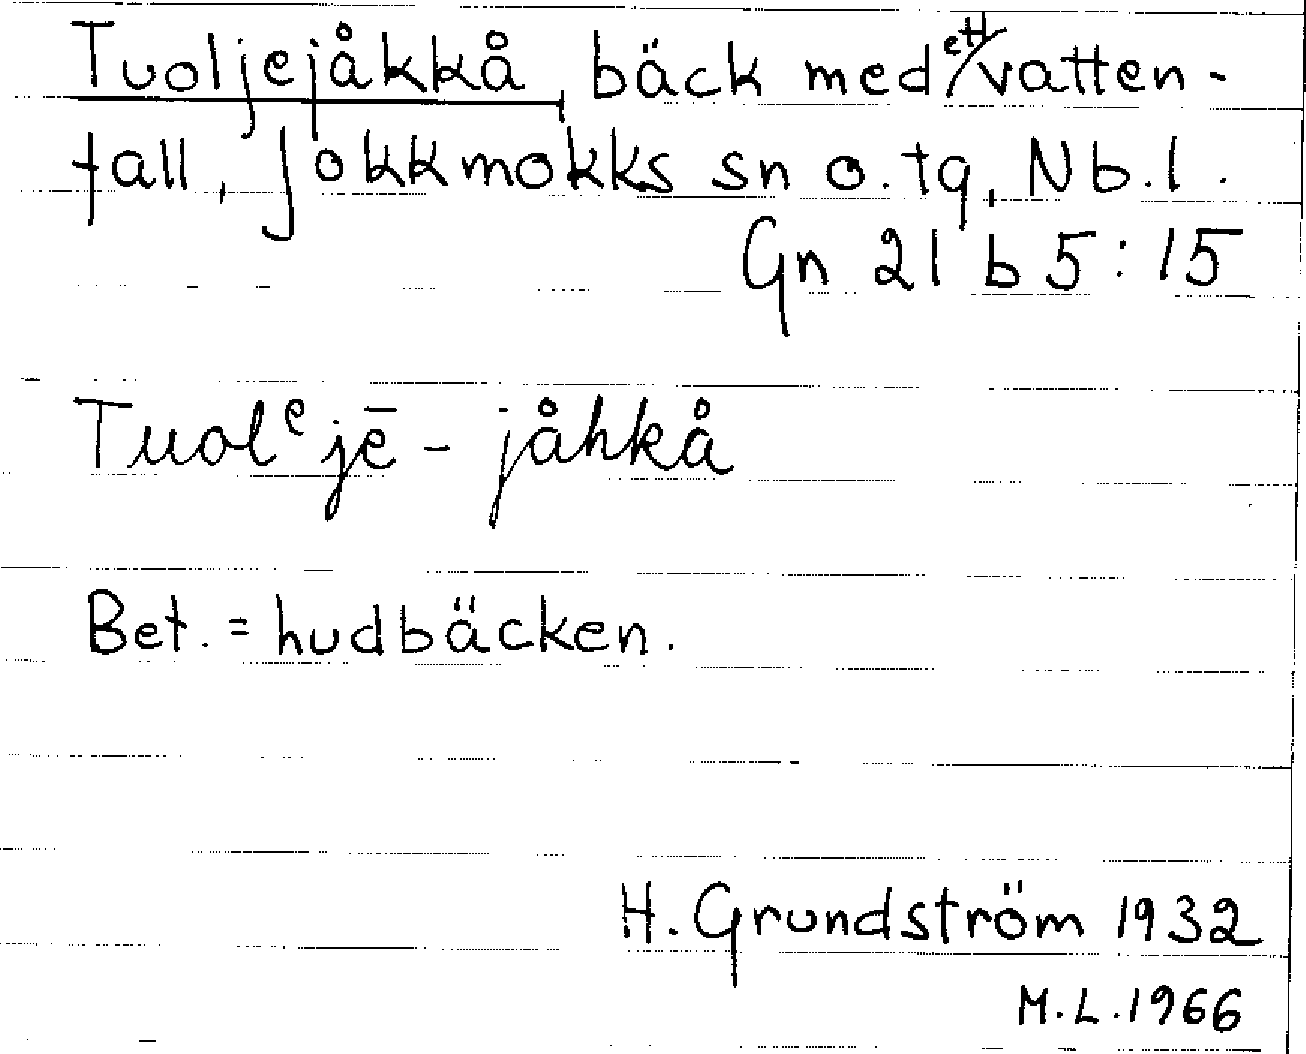 Tuoljejåkkå, bäck med ett vatten-
fall, Jokkmokks sn o. tg, Nb. l.
Gn 21 b 5:15
Tuolᵉjē-jåhkå
Bet. = hudbäcken.
H. Grundström 1932
M.L. 1966